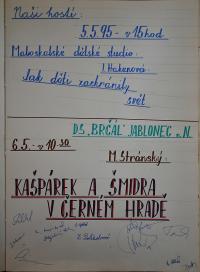 Naši hosté:
5.5.95 - v 15 hod
Maloskalské dětské studio:
I. Hakenová:
Jak děti zachránily
svět
D.S. „BRČÁL“ JABLONEC n. N.
6.5. - v 10.30
M. Stránský:
KAŠPÁREK A ŠMIDRA
V ČERNÉM HRADĚ